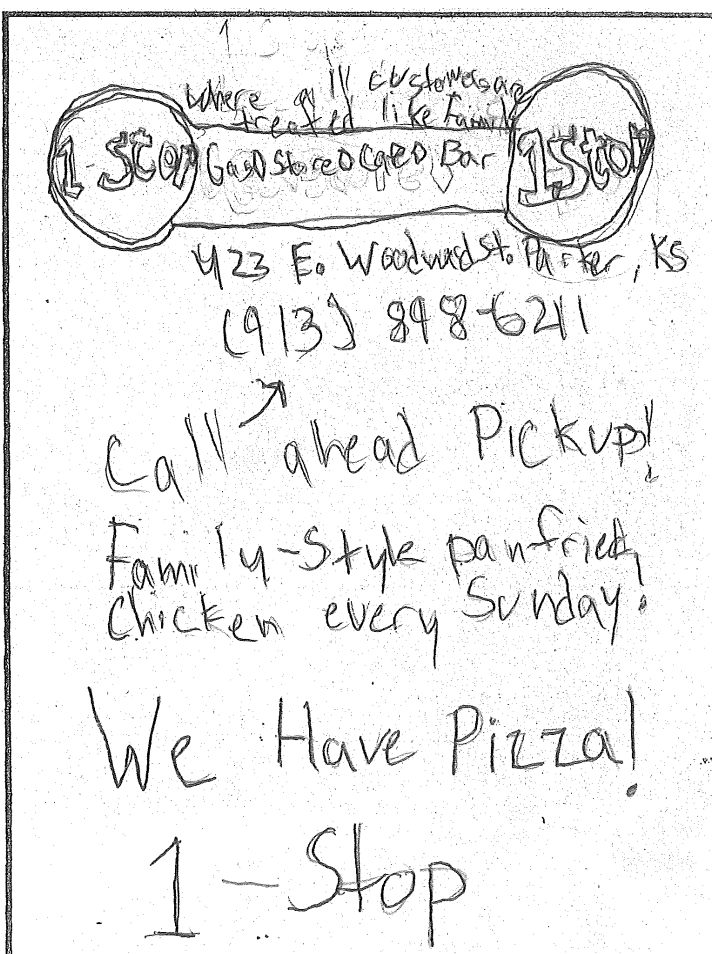 Where all customers are
treated like family
1-Stop Gas◊Store◊Cafe◊Bar 1-Stop
423 E. Woodward St. Parker, KS
(913) 898-6211
Call ahead Pickup!
Family-Style panfried
Chicken every Sunday!
We Have Pizza!
1-Stop